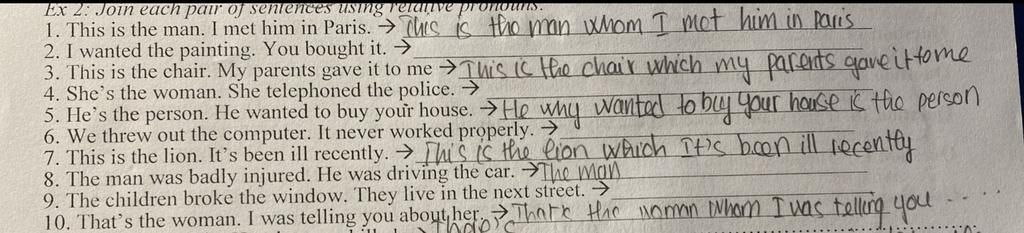 Ex 2: Join each pair of sentences using relative pronouns.
1. This is the man. I met him in Paris. → This is the man whom I met him in Paris
2. I wanted the painting. You bought it. →
3. This is the chair. My parents gave it to me → This is the chair which my parents gave it to me
4. She's the woman. She telephoned the police. →
5. He's the person. He wanted to buy your house. → He why wanted to buy your house is the person
6. We threw out the computer. It never worked properly. →
7. This is the lion. It's been ill recently. → This is the lion which It's been ill recently
8. The man was badly injured. He was driving the car. → The man
9. The children broke the window. They live in the next street. →
10. That's the woman. I was telling you about her. → the woman whom I was telling you